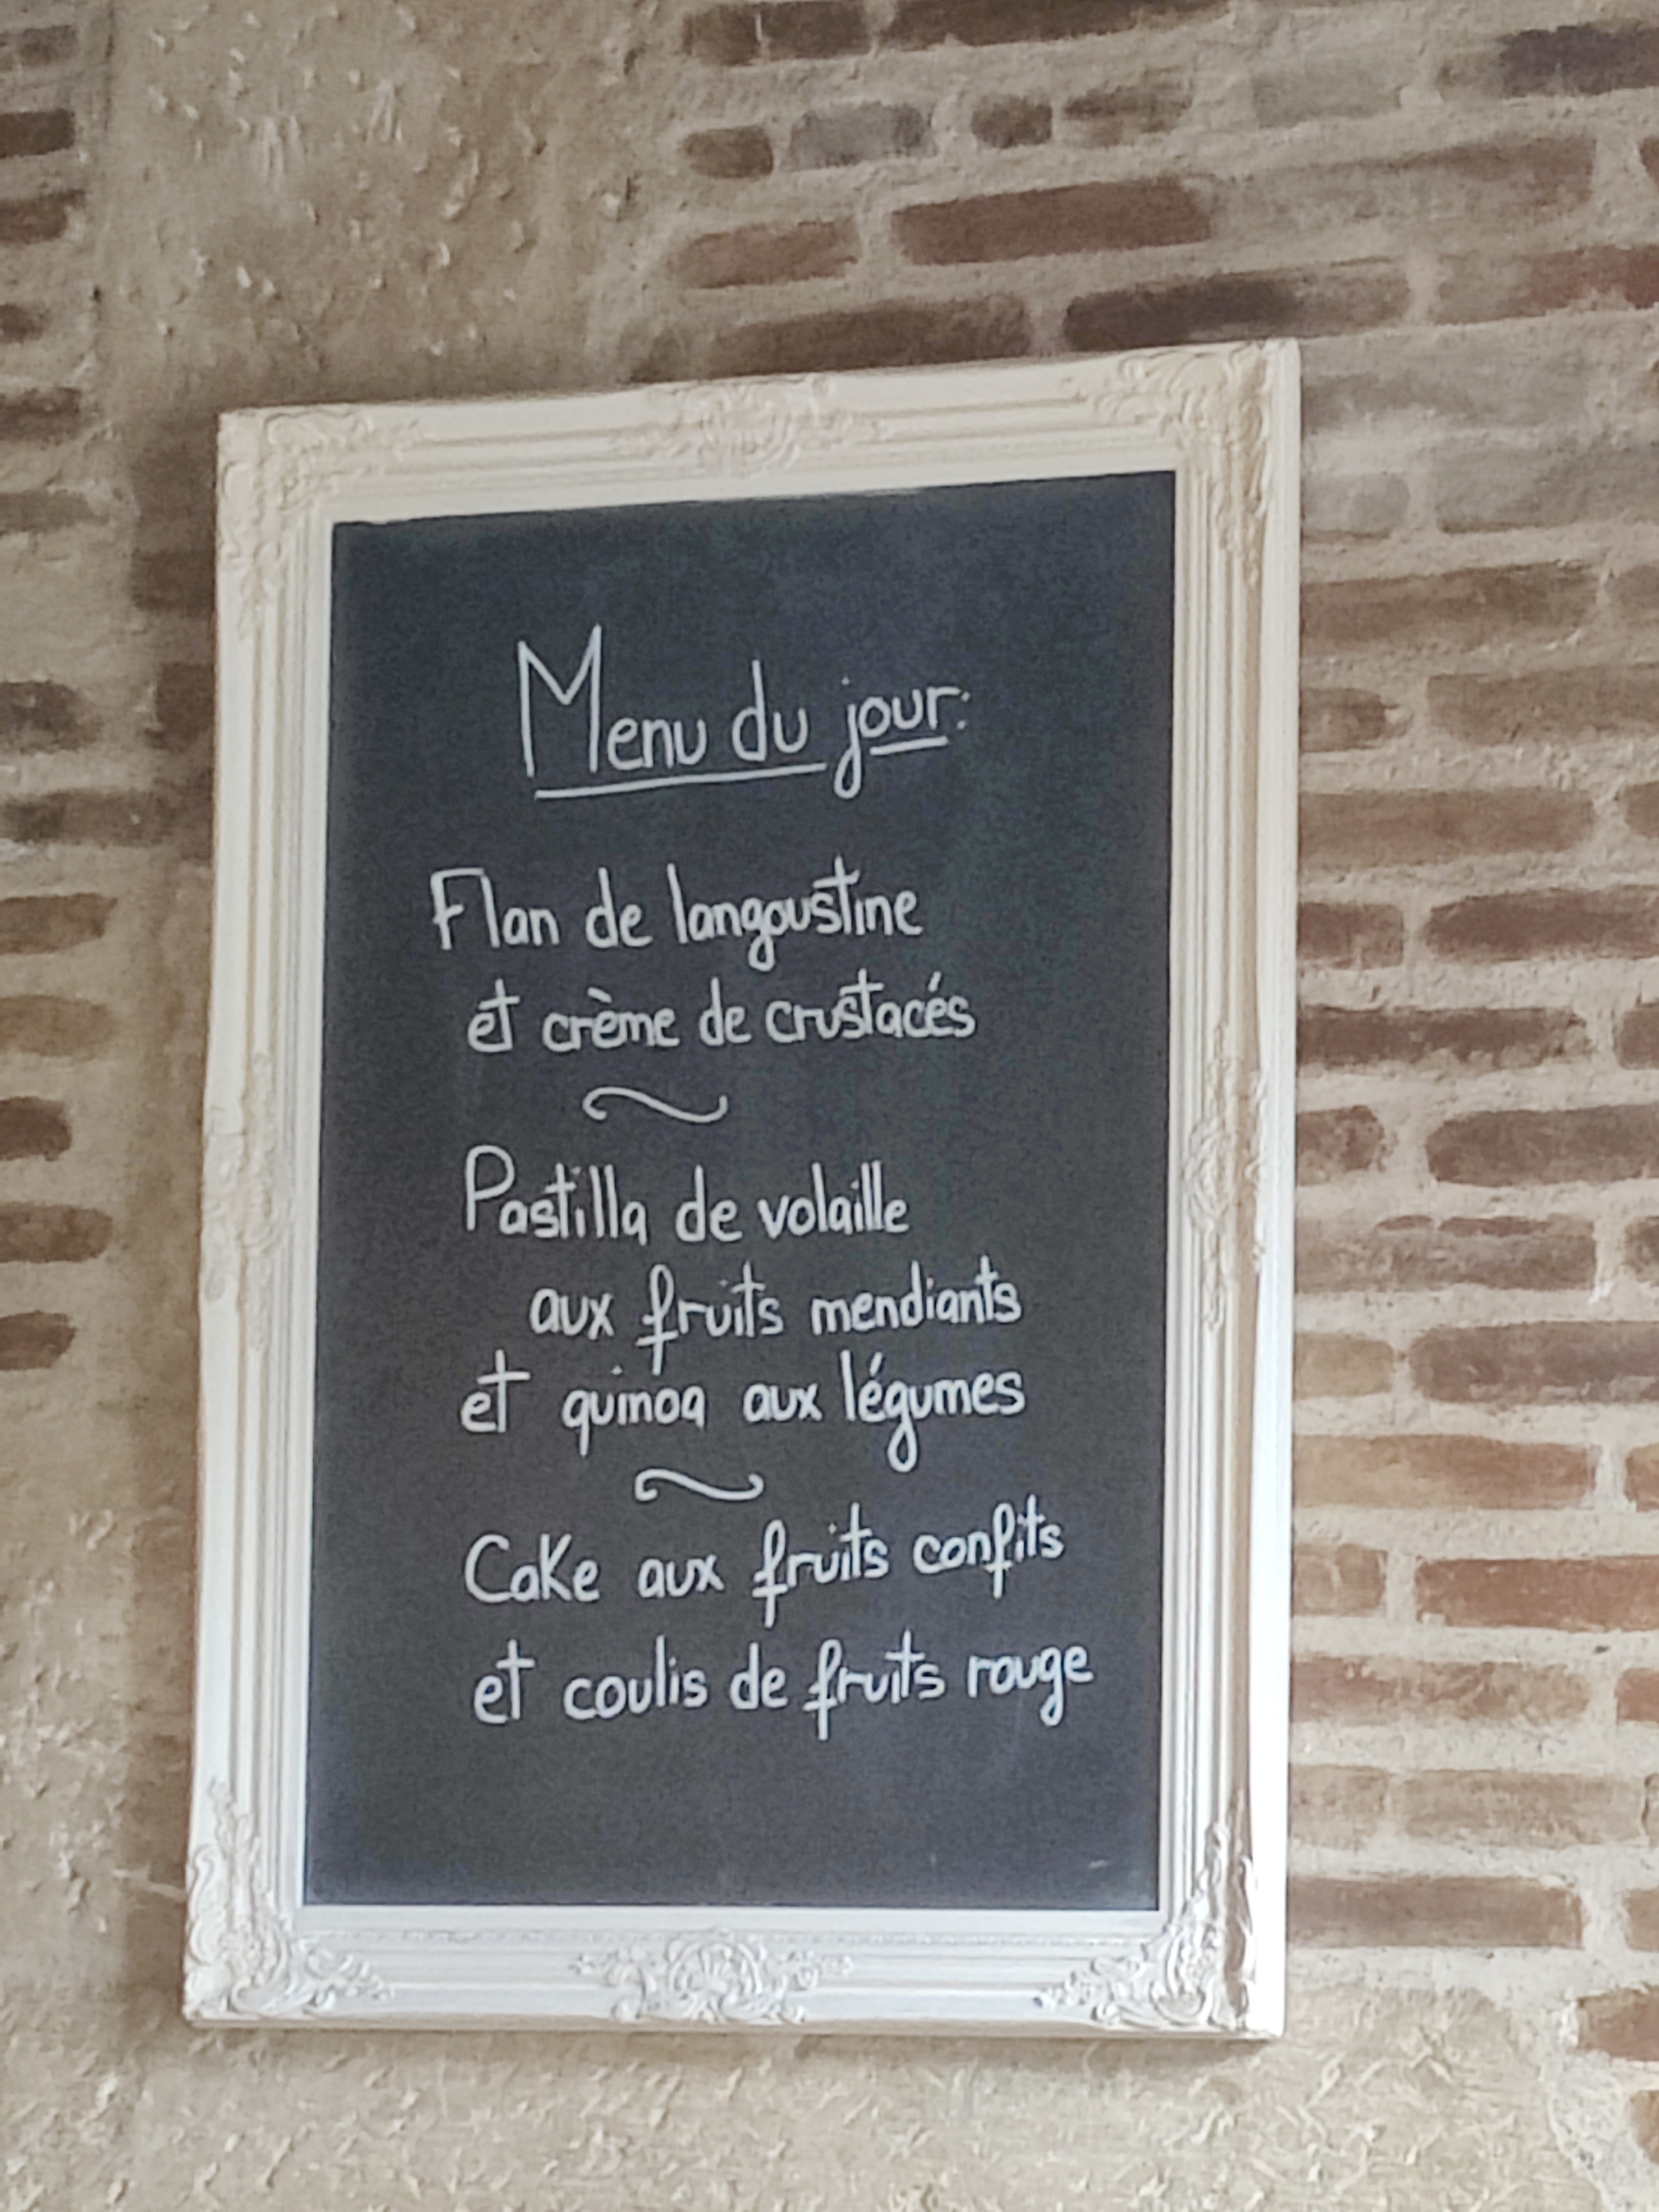 Menu du jour:
Flan de langoustine
et crème de crustacés
Pastilla de volaille
aux fruits mendiants
et quinoa aux légumes
Cake aux fruits confits
et coulis de fruits rouge